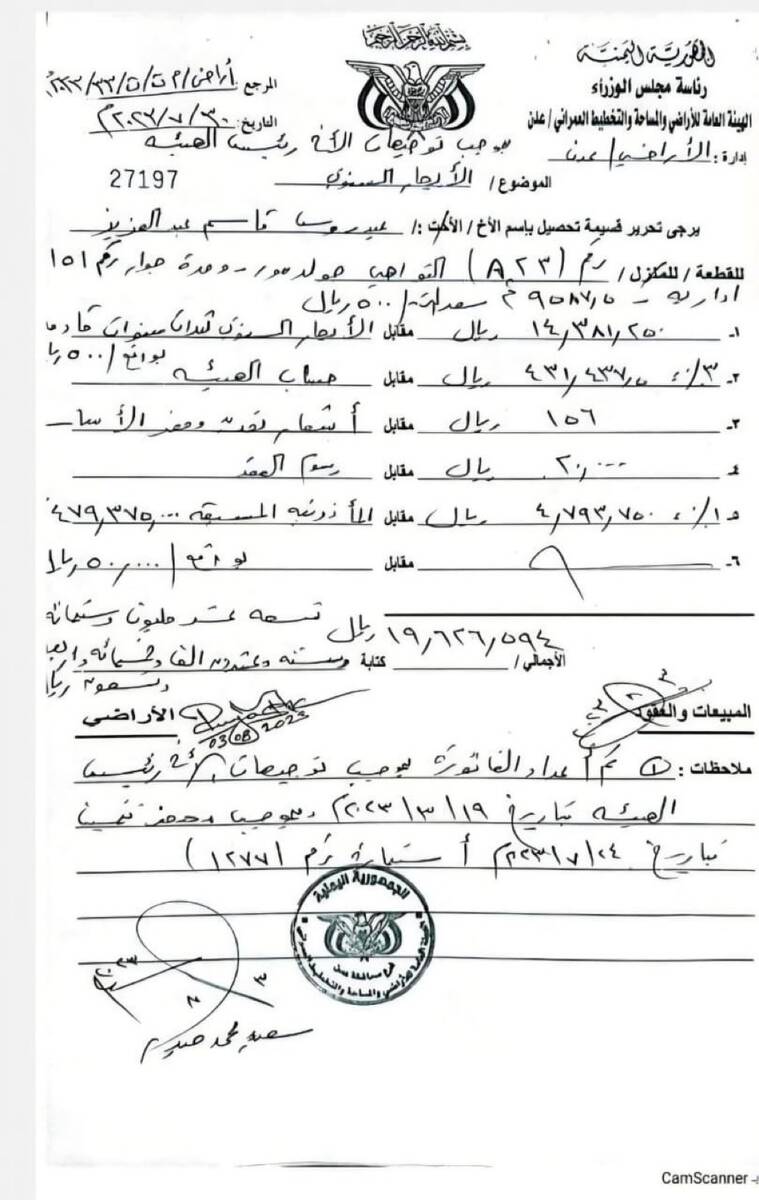 بسم الله الرحمن الرحيم
الجمهورية اليمنية
رئاسة مجلس الوزراء
الهيئة العامة للأراضي والمساحة والتخطيط العمراني / عدن
إدارة : الأراضي / عدن
المرجع : أراضي / م ت / ت / ٣٣ / ٢٠٢٣
التاريخ : ٣٠ / ٧ / ٢٠٢٣م
بموجب توجيهات الأخ رئيس الهيئه
الموضوع / الأيجار السنوي
27197
يرجى تحرير قسيمة تحصيل باسم الأخ / الأخت : / عيدروس قاسم عبدالعزيز
للقطعة / للمنزل / رقم (A ٢٣) التواهي جولدمور - وحدة جوار رقم ١٥١
ادارية - ٩٥٨٧,٥ م٢ / ٥٠٠ ريال
١- ١٤,٣٨١,٢٥٠ ريال مقابل الأيجار السنوي ثلاث سنوات قادمة
بواقع / ٥٠٠ ريال
٢- ٣٪ ٤٣١,٤٣٧,٥ ريال مقابل حساب الهيئه
٣- ١٥٦ ريال مقابل أشعار نقدت وحفر الأساس
٤- ٢٠,٠٠٠ ريال مقابل رسوم العقد
٥- ١٠٪ ٤,٧٩٣,٧٥٠ ريال مقابل المأذونيه المسبقه ٤٧٩,٣٧٥,٠٠٠
٦- مقابل بواقع / ٥٠,٠٠٠ ريال
الأجمالي / ١٩,٦٢٦,٥٩٤ ريال كتابة تسعه عشر مليون وستمائه
وسته وعشرون الفا وخمسمائه واربعه
وتسعون ريال
المبيعات والعقود
الأراضي
03/08/2023
ملاحظات : ① تم أعداد الفاتورة بموجب توجيهات الأخ رئيس
الهيئه بتاريخ ١٩ / ٣ / ٢٠٢٣م وبموجب محضر تثمين
بتاريخ ٢٤ / ٧ / ٢٠٢٣م أستمارة رقم (١٢٧٧)
الجمهورية اليمنية
الهيئة العامة للأراضي والمساحة والتخطيط العمراني
CamScanner